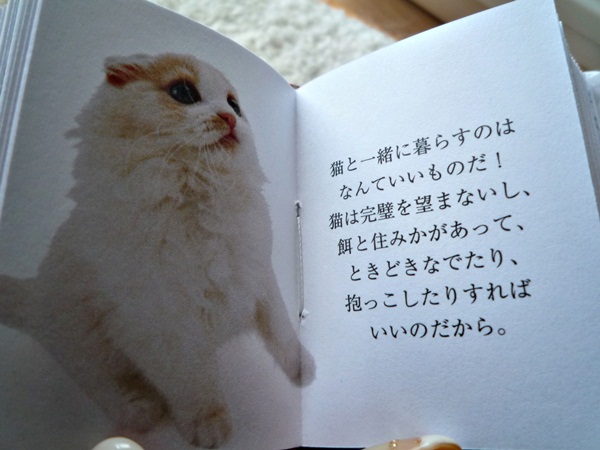 猫と一緒に暮らすのは
なんていいものだ！
猫は完璧を望まないし、
餌と住みかがあって、
ときどきなでたり、
抱っこしたりすれば
いいのだから。